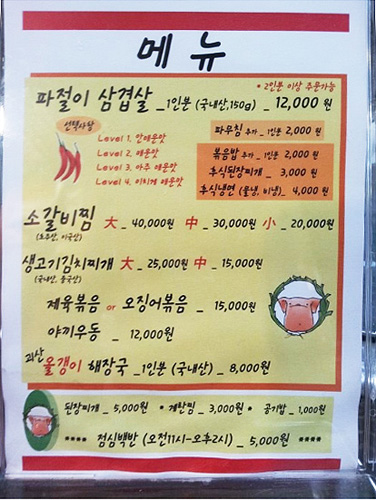 메뉴
* 2인분 이상 주문가능
파절이 삼겹살 _ 1인분 (국내산,150g) _ 12,000 원
선택사항
Level 1. 안매운맛
Level 2. 매운맛
Level 3. 아주 매운맛
Level 4. 미치게 매운맛
파무침 추가 _ 1인분 2,000 원
볶음밥 추가 _ 1인분 2,000원
후식된장찌개 _ 3,000 원
후식냉면 (물냉, 비냉) _ 4,000 원
소갈비찜 大 _ 40,000원 中 _ 30,000원 小 _ 20,000원
(호주산, 미국산)
생고기김치찌개 大 _ 25,000원 中 _ 15,000원
(국내산, 중국산)
제육볶음 or 오징어볶음 _ 15,000원
야끼우동 _ 12,000원
괴산 올갱이 해장국 _ 1인분 (국내산) _ 8,000원
된장찌개 _ 5,000원 * 계란찜 _ 3,000원 * 공기밥 _ 1,000원
**** 점심백반 (오전11시-오후2시) _ 5,000원 ****